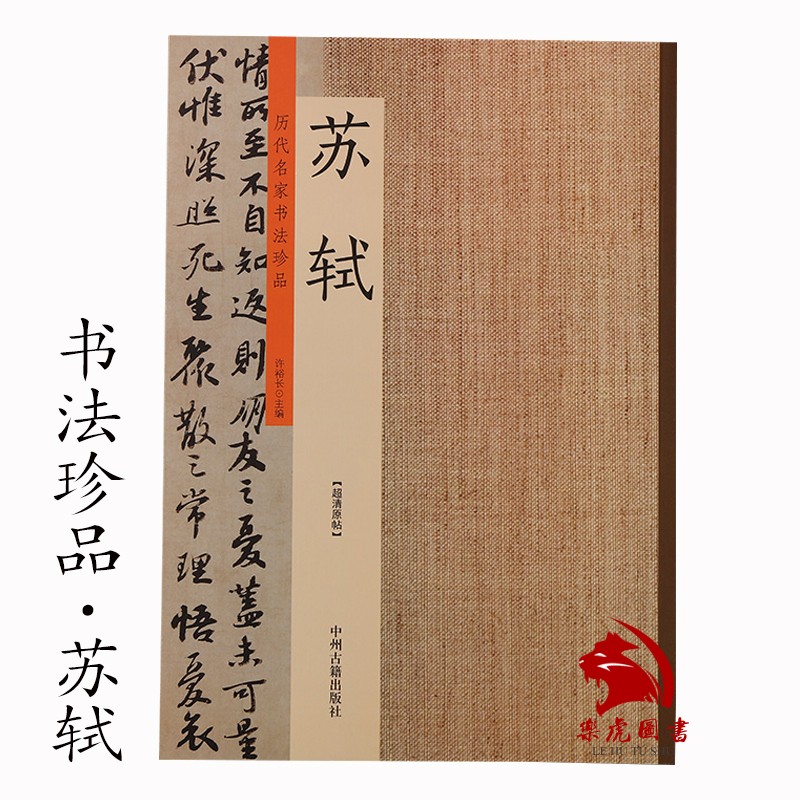 书法珍品·苏轼
情所至不自知返則朋友之憂蓋未可量
伏惟深照死生聚散之常理悟憂哀
历代名家书法珍品
许裕长⊙主编
苏轼
【超清原帖】
中州古籍出版社
樂虎圖書
LE HU TU SHU